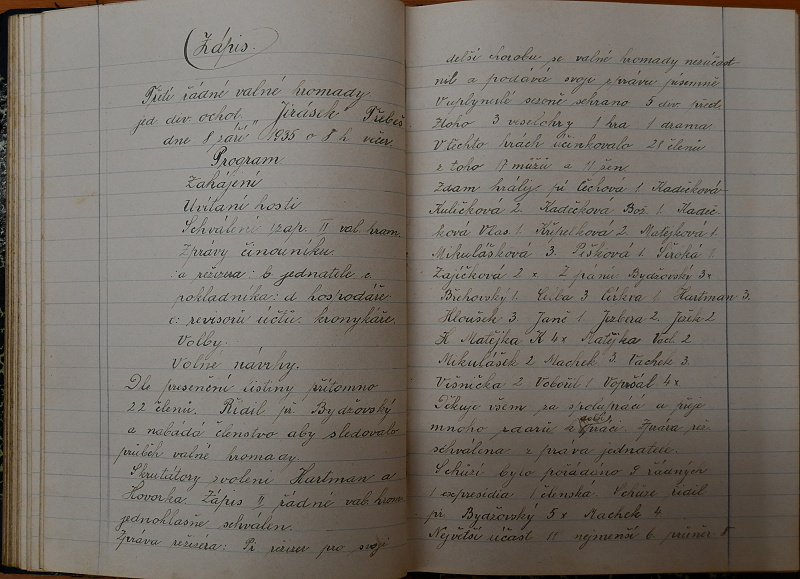 Zápis.
Třetí řádné valné hromady
jed. div. ochot. „Jirásek" Třebeš
dne 8 září 1935 o 8 h. večer
Program
Zahájení
Uvítaní hostí
Schválení zap. II val. hrom.
Zprávy činovníku.
:a režizera: b jednatele c.
pokladníka: d hospodáře
e: revisorů účtů. kronykáře.
Volby.
Volné návrhy.
Dle presenční listiny přítomno
22 členů. Řídil př. Bydžovský
a nabádá členstvo aby sledovalo
průběh valné hromady.
Skrutátory zvoleni Hartman a
Hovorka. Zápis II řádné val. hrom
jednohlasně schválen.
Zpráva režiséra: Př. režiser pro svoji
delší chorobu se valné hromady nezúčast
nil a podává svoji zprávu písemně
V uplynulé sezoně sehráno 5 div. před.
Z toho 3 veselohry 1 hra 1 drama
V těchto hrách účinkovalo 28 členů
z toho 17 mužů a 11 žen.
Z dam hrály: pí Čechová 1 Kadičková
Kuličková 2. Kadičková Bož. 1. Kadič
ková Vlas. 1. Křipelková 2 Matějková 1.
Mikulášková 3. Pišková 1. Široká 1.
Zajíčková 2 x Z pánů Bydžovský 3x
Břehovský 1. Cerba 3 Církva 1 Hartman 3.
Hloušek 3. Janč 1. Jezbera 2. Ježek 2
K Matějka K 4x Matějka Vacl. 2
Mikulášek 2 Machek 3. Vachek 3.
Višnička 2 Vobořil 1 Vopršal 4x
Děkuje všem za spolupráci a přeje
mnoho zdaru k další práci. Zpráva rež.
schválena. Zpráva jednatele.
Schůzí bylo pořádáno 9 řádných
1 expresidia 1 členská. Schůze řídil
př. Bydžovský 5 x Machek 4
Největší účast 11 nejmenší 6. průměr 8